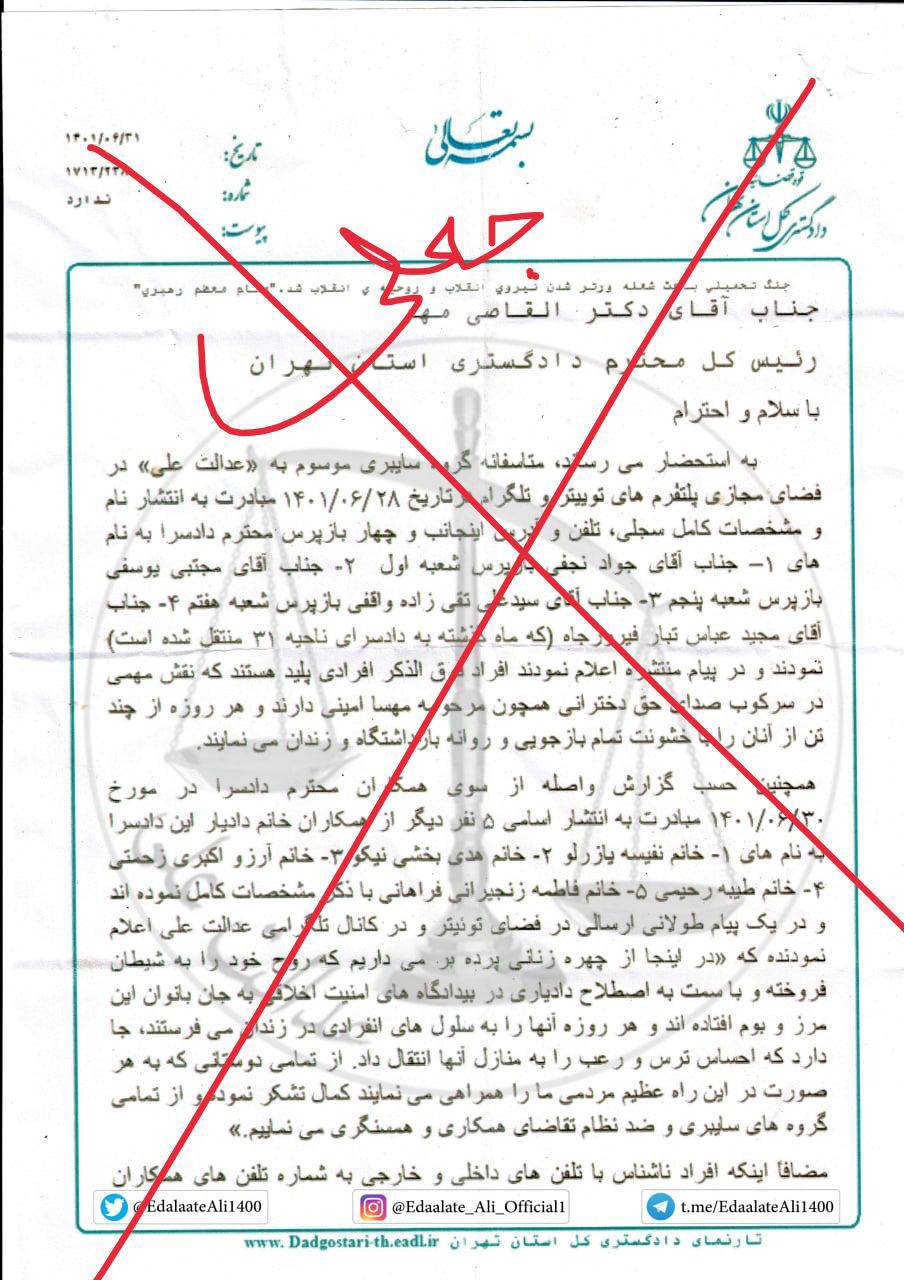 بسمه تعالی
قوه قضائیه
دادگستری کل استان تهران
تاریخ: ۱۴۰۱/۰۶/۳۱
شماره: ۱۷۱۳/۲۳۸
پیوست: ندارد
جعلی
جنگ تحمیلی باعث شعله ورتر شدن نیروی انقلاب و روحیه ی انقلاب شد."مقام معظم رهبری"
جناب آقای دکتر القاصی مهر
رئیس کل محترم دادگستری استان تهران
با سلام و احترام
به استحضار می رساند، متاسفانه گروه سایبری موسوم به «عدالت علی» در
فضای مجازی پلتفرم های توییتر و تلگرام درتاریخ ۱۴۰۱/۰۶/۲۸ مبادرت به انتشار نام
و مشخصات کامل سجلی، تلفن و آدرس اینجانب و چهار بازپرس محترم دادسرا به نام
های ۱- جناب آقای جواد نجفی بازپرس شعبه اول ۲- جناب آقای مجتبی یوسفی
بازپرس شعبه پنجم ۳- جناب آقای سیدعلی تقی زاده واقفی بازپرس شعبه هفتم ۴- جناب
آقای مجید عباس تبار فیروزجاه (که ماه گذشته به دادسرای ناحیه ۳۱ منتقل شده است)
نمودند و در پیام منتشره اعلام نمودند افراد فوق الذکر افرادی پلید هستند که نقش مهمی
در سرکوب صدای حق دخترانی همچون مرحومه مهسا امینی دارند و هر روزه از چند
تن از آنان را با خشونت تمام بازجویی و روانه بازداشتگاه و زندان می نمایند.
همچنین حسب گزارش واصله از سوی همکاران محترم دادسرا در مورخ
۱۴۰۱/۰۶/۳۰ مبادرت به انتشار اسامی ۵ نفر دیگر از همکاران خانم دادیار این دادسرا
به نام های ۱- خانم نفیسه یازرلو ۲- خانم هدی بخشی نیکو ۳- خانم آرزو اکبری زحمتی
۴- خانم طیبه رحیمی ۵- خانم فاطمه زنجیرانی فراهانی با ذکر مشخصات کامل نموده اند
و در یک پیام طولانی ارسالی در فضای توئیتر و در کانال تلگرامی عدالت علی اعلام
نمودنده که «در اینجا از چهره زنانی پرده بر می داریم که روح خود را به شیطان
فروخته و با سمت به اصطلاح دادیاری در بیدادگاه های امنیت اخلاقی به جان بانوان این
مرز و بوم افتاده اند و هر روزه آنها را به سلول های انفرادی در زندان می فرستند، جا
دارد که احساس ترس و رعب را به منازل آنها انتقال داد. از تمامی دوستانی که به هر
صورت در این راه عظیم مردمی ما را همراهی می نمایند کمال تشکر نموده و از تمامی
گروه های سایبری و ضد نظام تقاضای همکاری و همسنگری می نماییم.»
مضافاً اینکه افراد ناشناس با تلفن های داخلی و خارجی به شماره تلفن های همکاران
@EdalaateAli1400 @Edaalate_Ali_Official1 t.me/EdaalateAli1400
تارنمای دادگستری کل استان تهران www. Dadgostari-th.eadl.ir